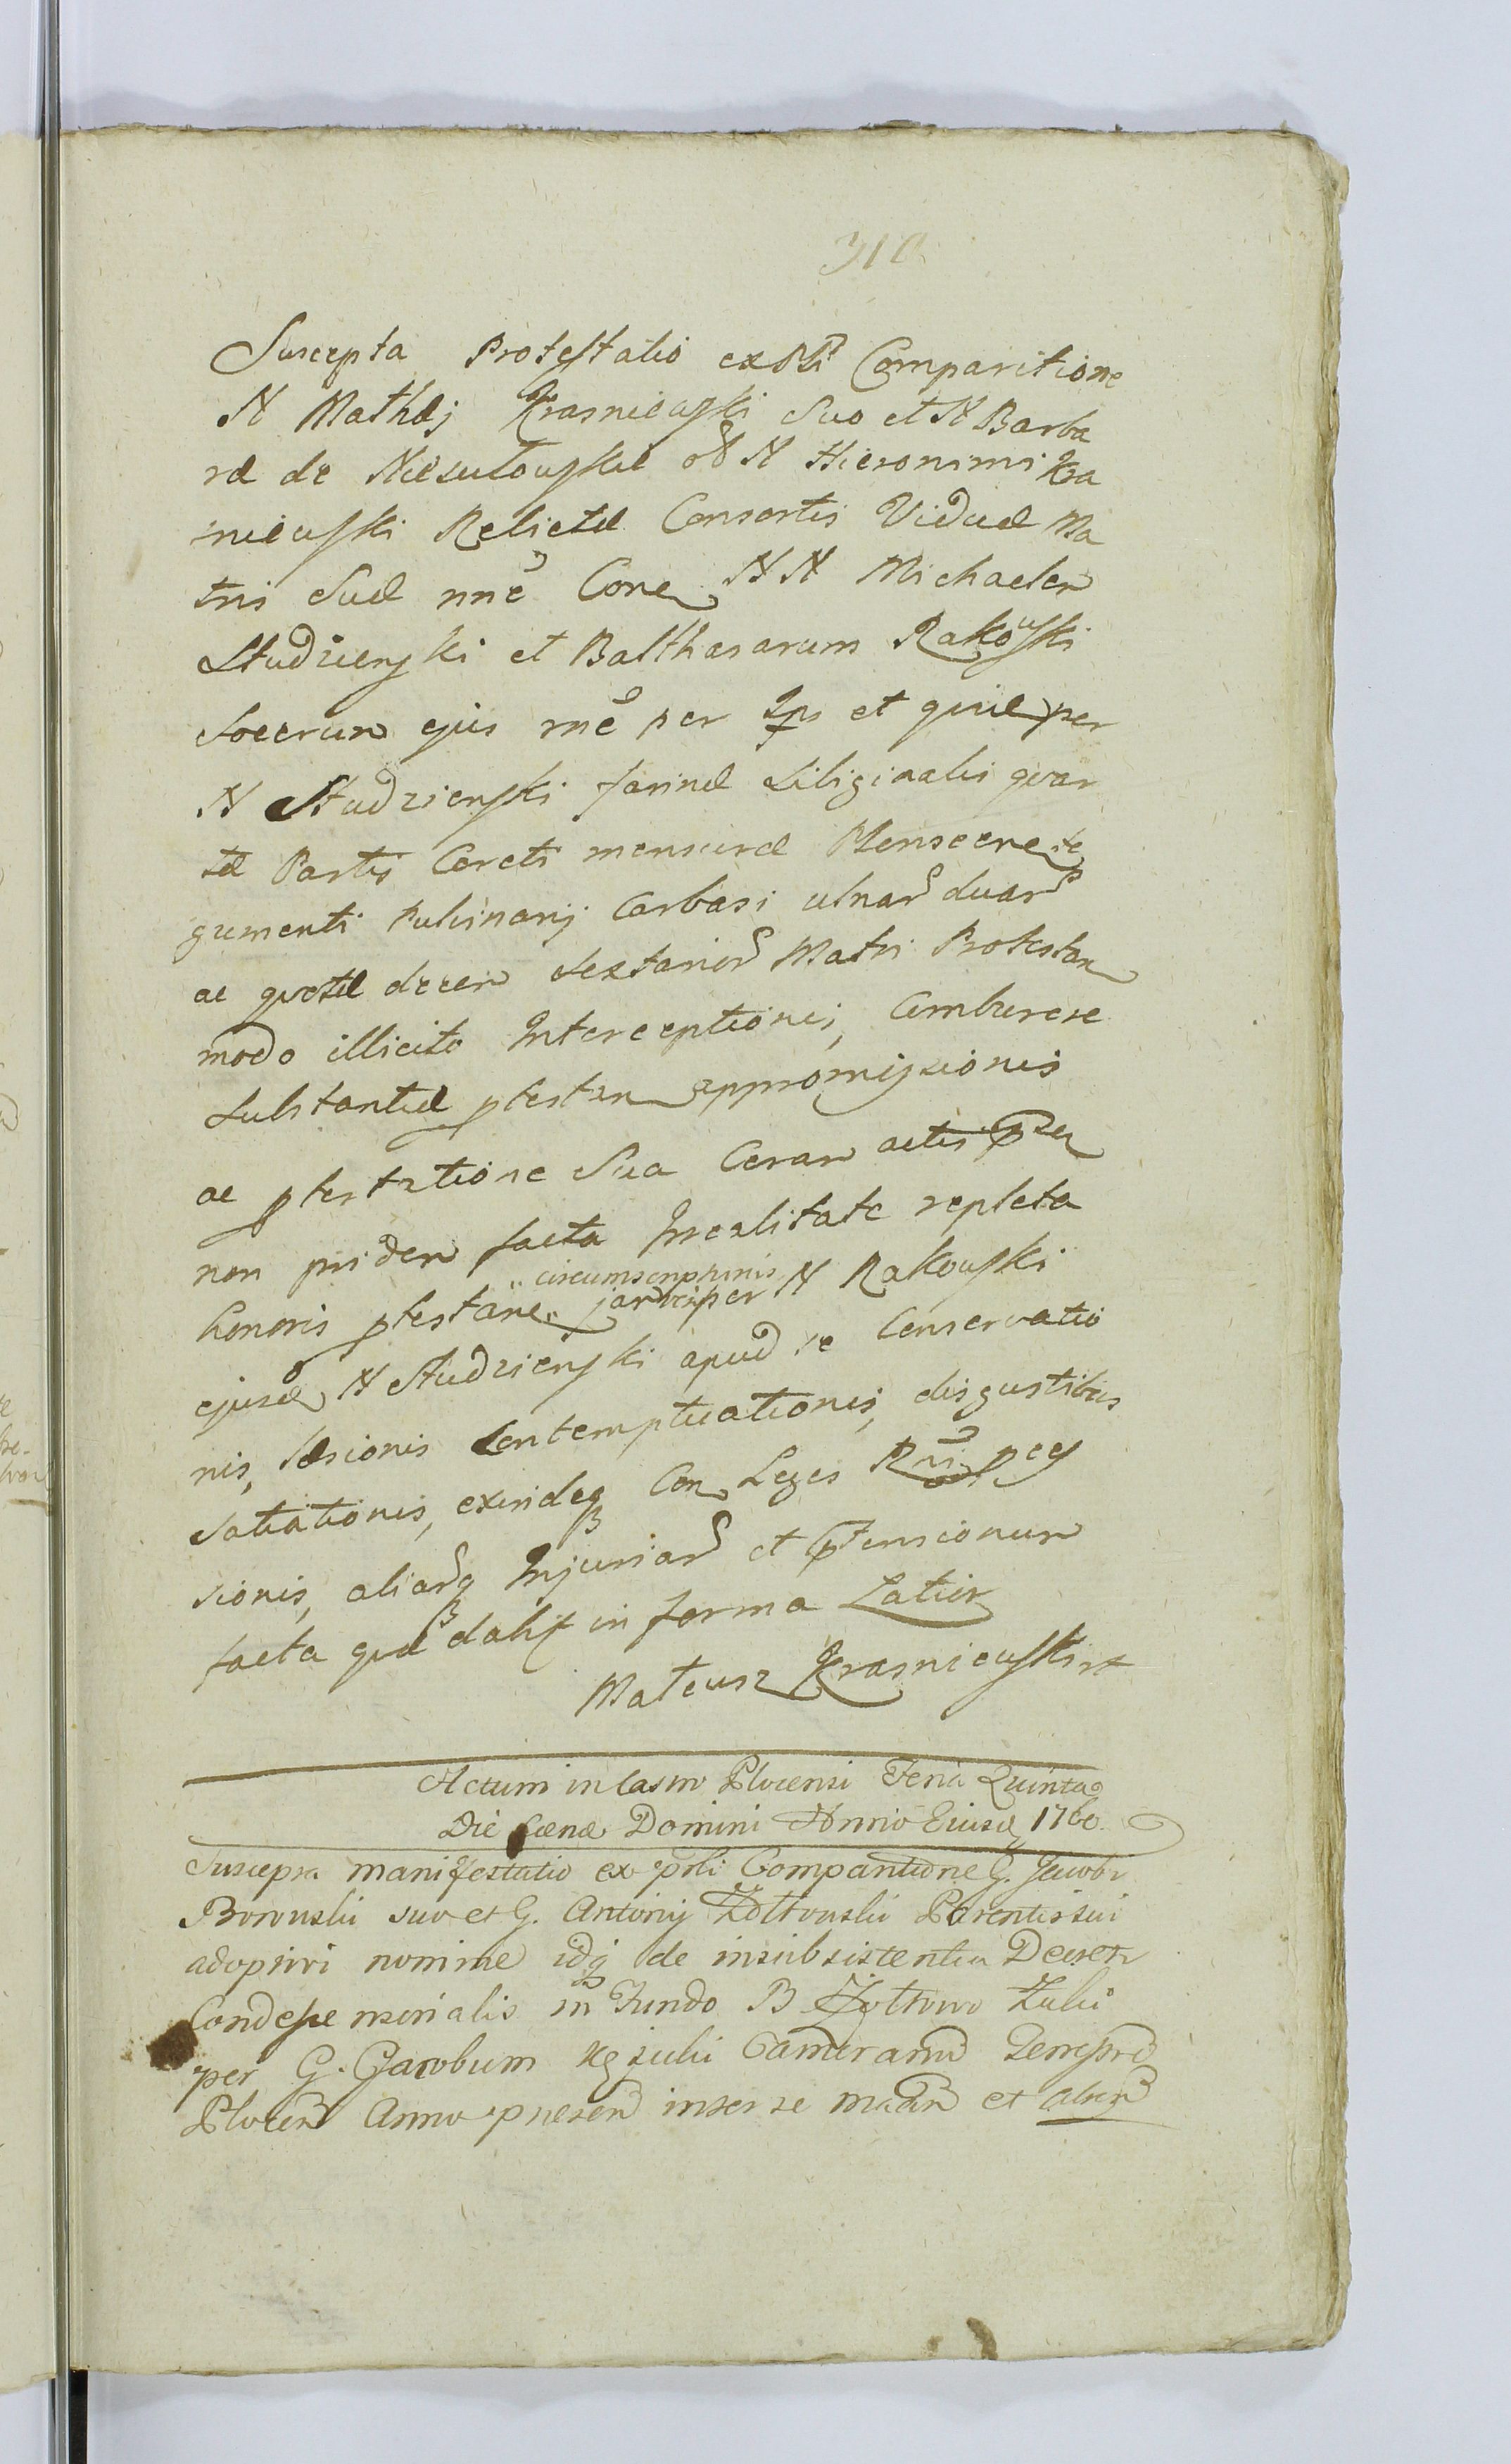 310
Suscepta Protestatio ex psti Comparitione
N Mathæj Krasniewski Suo et N Barba
ræ de Niesułowskie olȋ N Hieronimi Kra
sniewski Relictæ Consortis Viduæ Ma
tris Suæ nne Con NN Michaelem
Studzienski et Balthasarum Rakowski
Socerum ejus rne per Ips et quidem per
N Studzienski farinæ Siliginalis quar
tæ Partis Coreti mensuræ Plonscen te
gumenti Pulvinarij Carbasi ulnar duar
ac quotæ decem sextarior Matri Protestan
modo illicito Interceptionis, Comburere
Substantiæ ptestan appromissionis
ac ptestatione Sua Coram actis
non pridem facta Irrealitate repleta
circumscriptionis
honoris ptestan per N Rakowski
ejusd N Studzienski apud se Conservatio
nis, læsionis Contemptuationis, disgustibus
Satiationis, exindeq Con Leges Rni
sionis, aliarq Injuriar et ptensionum
facta quæ dabit in forma Latiori
Mateusz Krasniewski
Actum in Castro Plocensi Feria Quinta
Die Cœnæ Domini Anno Eiusd 1760.
Suscepta manifestatio ex psti Comparitione G. Jacobi
Borowski suo et G. Antonij Zołtowski Parentis sui
adoptivi nomine idq de insubsistentia Decreti
Condescensorialis in Fundo B Zołtowo
per G. Jacobum Camerarium Terrestrem
Plocen Anno præsen inter se et